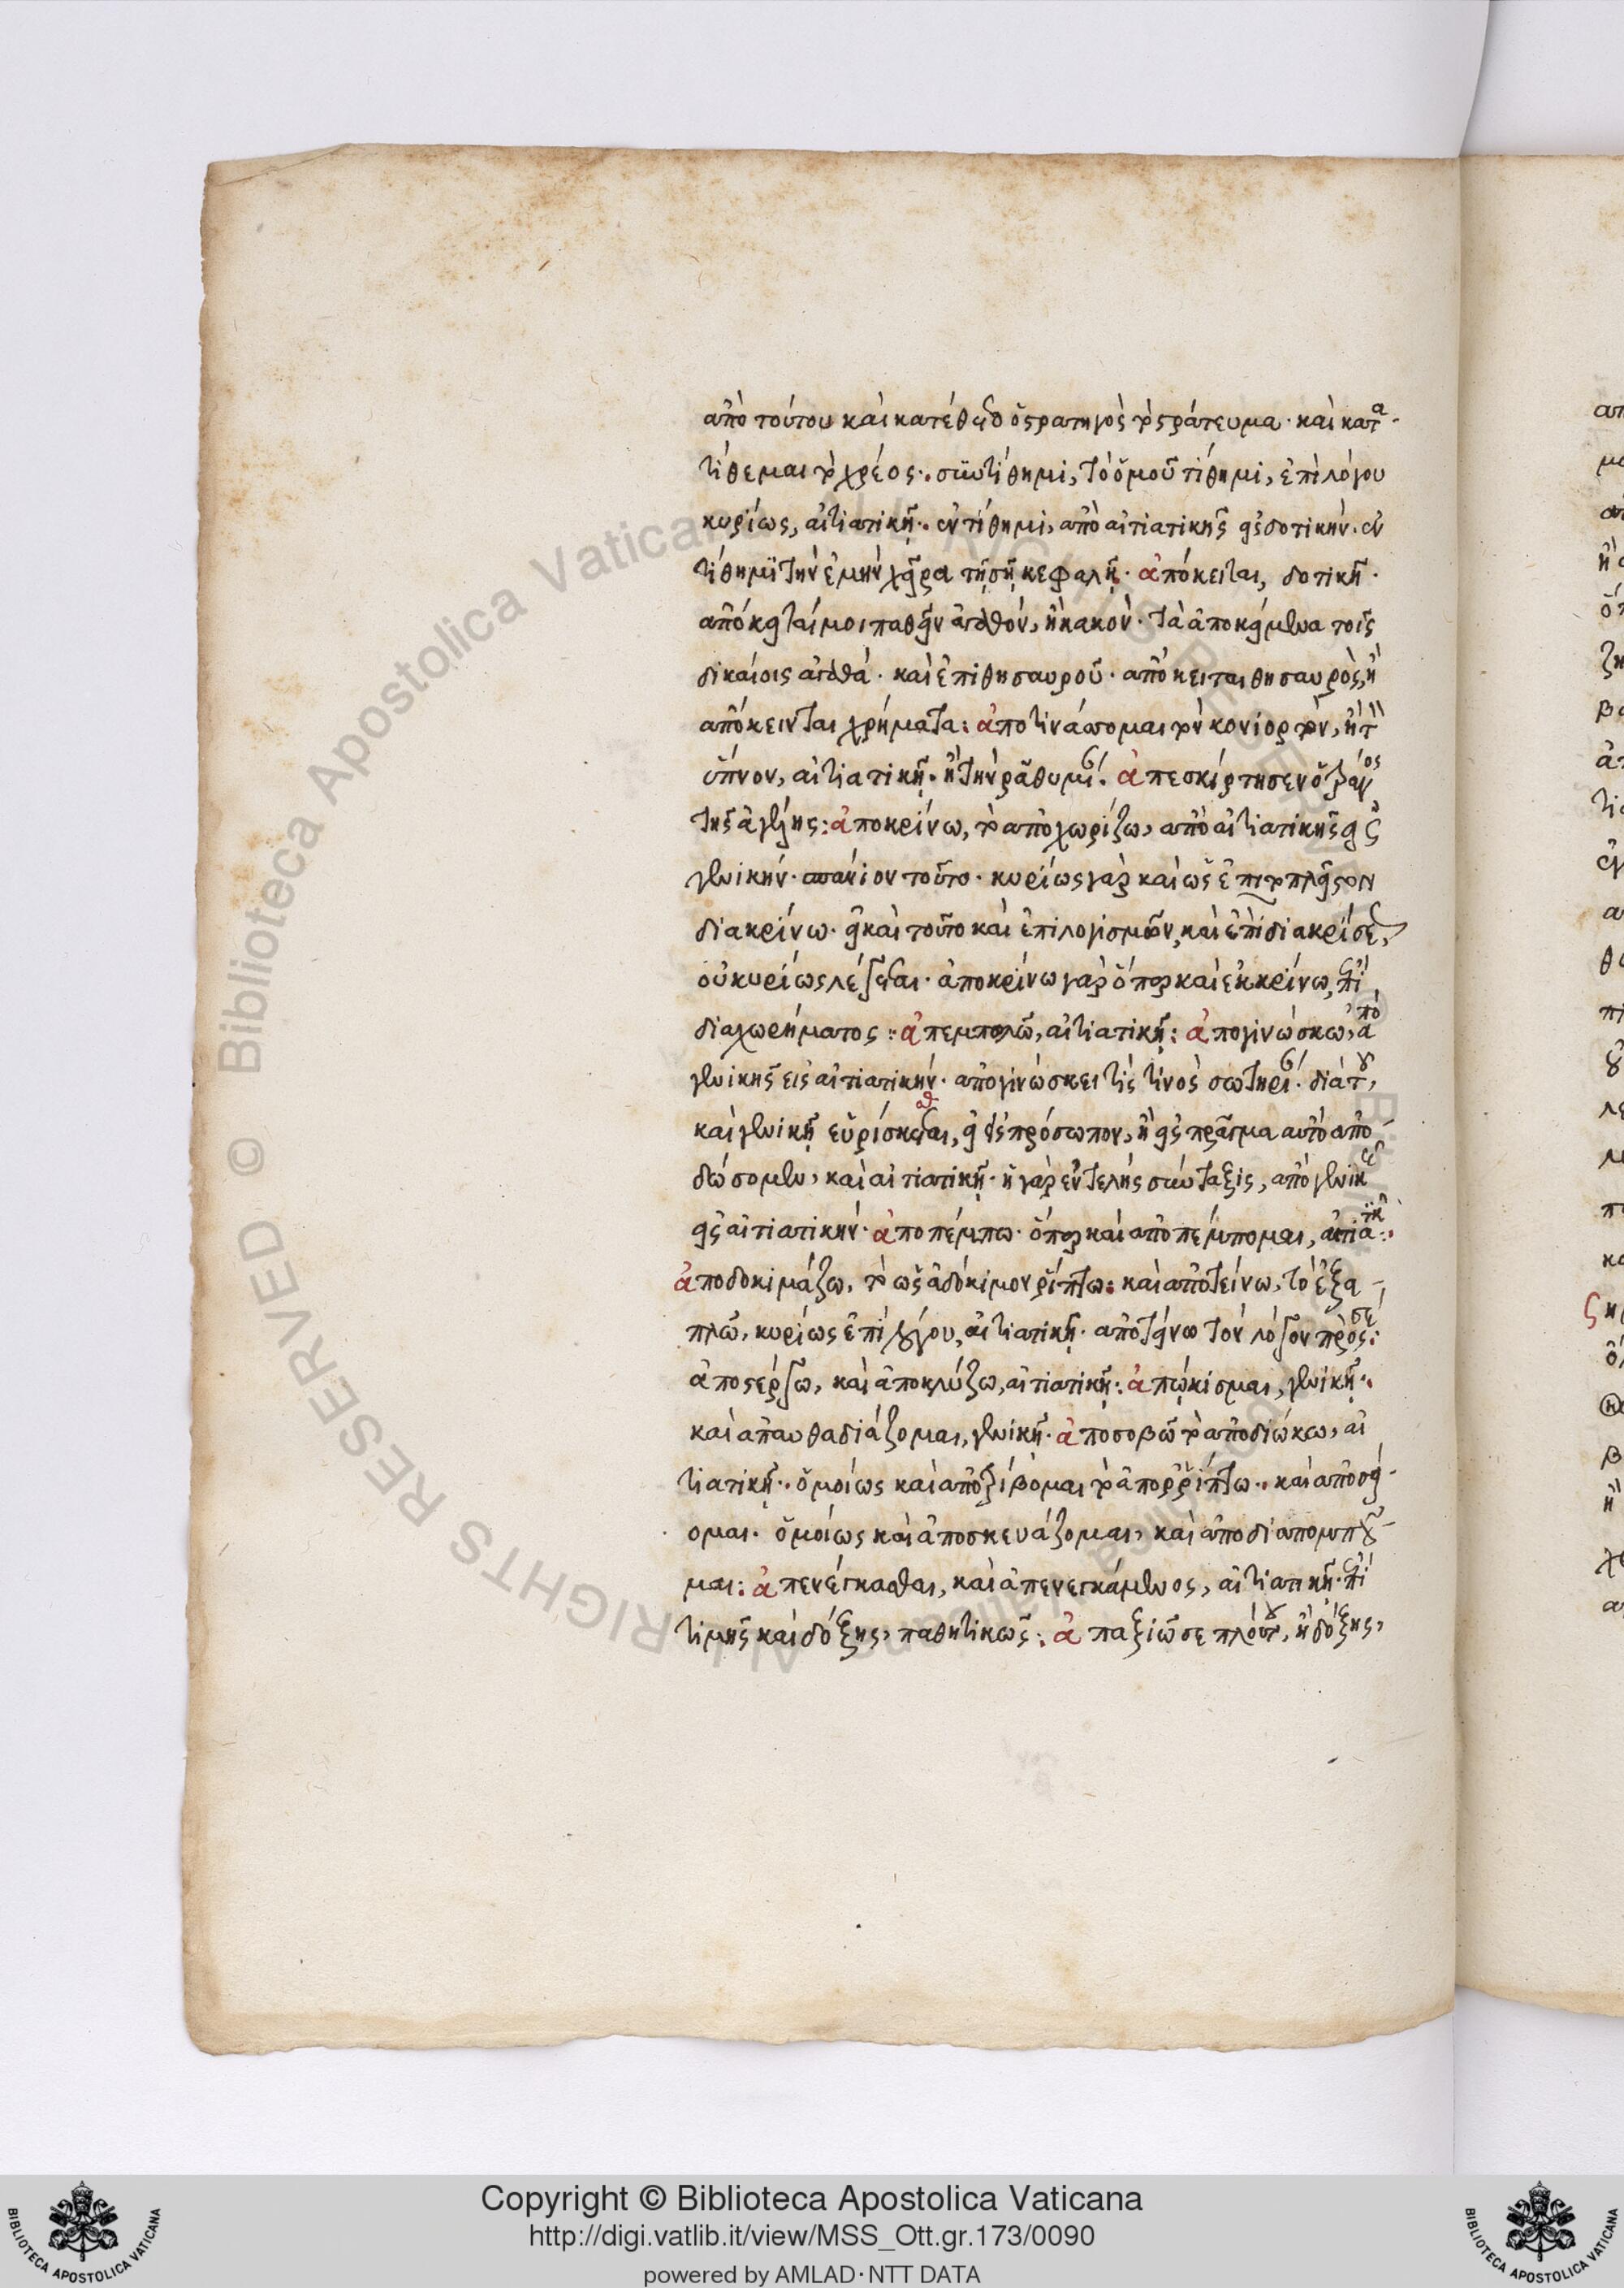 ἀπὸ τούτου καὶ κατέθετο ὁ στρατηγὸς τὸ στράτευμα· καὶ κατα
τίθεμαι τὸ χρέος· συντίθημι, τὸ ὁμοῦ τίθημι, ἐπὶ λόγου
κυρίως, αἰτιατικῇ· ἐντίθημι, ἀπὸ αἰτιατικῆς εἰς δοτικήν· ἐν
τίθημι τὴν ἐμὴν χεῖρα τῇ σῇ κεφαλῇ· ἀπόκειται, δοτικῇ·
ἀπόκειταί μοι παθεῖν ἀγαθόν, ἢ κακόν· τὰ ἀποκείμενα τοῖς
δικαίοις ἀγαθά· καὶ ἐπὶ θησαυροῦ· ἀπόκειται θησαυρὸς, ἢ
ἀπόκεινται χρήματα: ἀποτινάσσομαι τὸν κονιορτὸν, ἢ τὸν
ὕπνον, αἰτιατικῇ· ἢ τὴν ῥαθυμίαν· ἀπεσκίρτησεν ὁ
τῆς ἀγέλης: ἀποκρίνω, τὸ ἀποχωρίζω, ἀπὸ αἰτιατικῆς εἰς
γενικήν· σπάνιον τοῦτο· κυρίως γὰρ καὶ ὡς ἐπὶ τὸ πλεῖστον
διακρίνω· εἰ καὶ τοῦτο καὶ ἐπὶ λογισμῶν, καὶ ἐπὶ διακρίσεως,
οὐ κυρίως λέγεται· ἀποκρίνω γὰρ ὅπερ καὶ ἐκκρίνω, ἐπὶ
διαχωρήματος: ἀπεμπολῶ, αἰτιατικῇ: ἀπογινώσκω, ἀπὸ
γενικῆς εἰς αἰτιατικήν· ἀπογινώσκει τίς τινος σωτηρίαν· διὰ τοῦ,
καὶ γενικῇ εὑρίσκεται, εἰ εἰς πρόσωπον, ἢ εἰς πρᾶγμα αὐτὸ ἀπο
δώσομεν, καὶ αἰτιατικῇ· ἡ γὰρ ἐντελὴς σύνταξις, ἀπὸ γενικῆς
εἰς αἰτιατικήν· ἀποπέμπω· ὅπερ καὶ ἀποπέμπομαι, αἰτιατικῇ:
ἀποδοκιμάζω, τὸ ὡς ἀδόκιμον ῥίπτω: καὶ ἀποτείνω, τὸ ἐξα
πλῶ, κυρίως ἐπὶ λόγου, αἰτιατικῇ· ἀποτείνω τὸν λόγον πρὸς σέ:
ἀποστέργω, καὶ ἀποκλύζω, αἰτιατικῇ: ἀπῴκισμαι, γενικῇ·
καὶ ἀπαυθαδιάζομαι, γενικῇ· ἀποσοβῶ τὸ ἀποδιώκω, αἰ
τιατικῇ· ὁμοίως καὶ ἀποτρίβομαι τὸ ἀπορρίπτω· καὶ ἀποσεί
ομαι· ὁμοίως καὶ ἀποσκευάζομαι, καὶ ἀποδιαπομποῦ
μαι: ἀπενέγκασθαι, καὶ ἀπενεγκάμενος, αἰτιατικῇ· ἐπὶ
τιμῆς καὶ δόξης, παθητικῶς: ἀπαξιῶ σε πλούτου, ἢ δόξης,
Copyright © Biblioteca Apostolica Vaticana
http://digi.vatlib.it/view/MSS_Ott.gr.173/0090
powered by AMLAD·NTT DATA